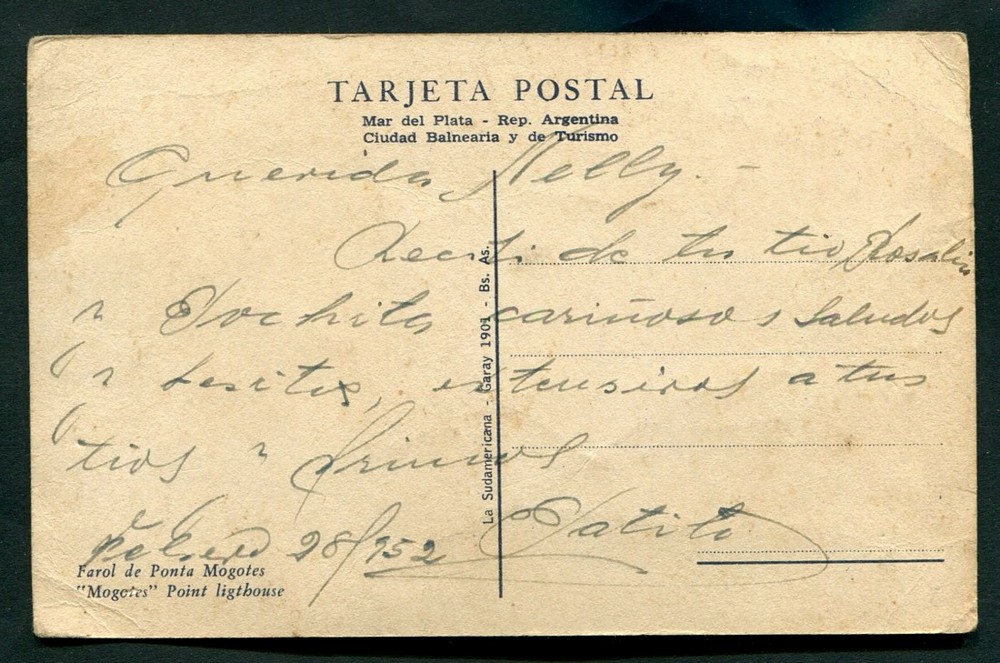 TARJETA POSTAL
Mar del Plata - Rep. Argentina
Ciudad Balnearia y de Turismo
Querida Nelly. -
Recibi de tu tio, Rosalia
y Pochita cariñosos saludos
y besitos, extensivos a tus
tios y primos
Febrero 28/952 Patito
La Sudamericana - Garay 1909 - Bs. As.
Farol de Ponta Mogotes
"Mogotes" Point ligthouse